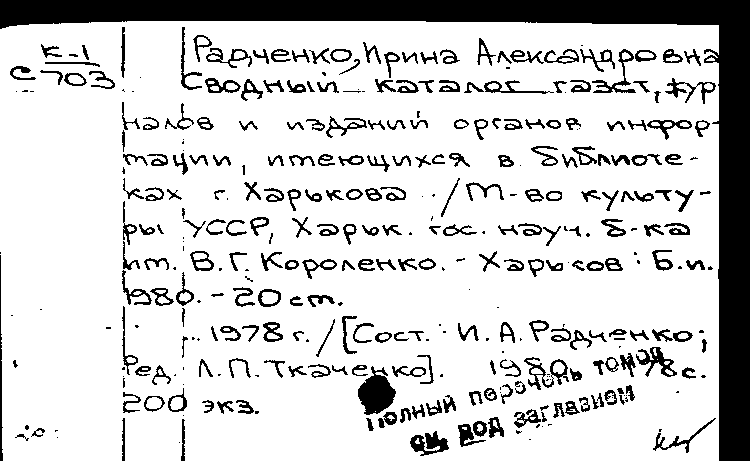 К-1
С 703
Радченко, Ирина Александровна
Сводный каталог газет, жур-
налов и изданий органов инфор-
мации, имеющихся в библиоте-
ках г. Харькова. / М-во культу-
ры УССР, Харьк. гос. науч. б-ка
им. В. Г. Короленко. - Харьков: Б.и.
1980. - 20 см.
... 1978 г. / [Сост.: И. А. Радченко;
Ред. Л. П. Ткаченко]. 1980. 178 с.
200 экз.
Полный перечень томов
см. под заглавием